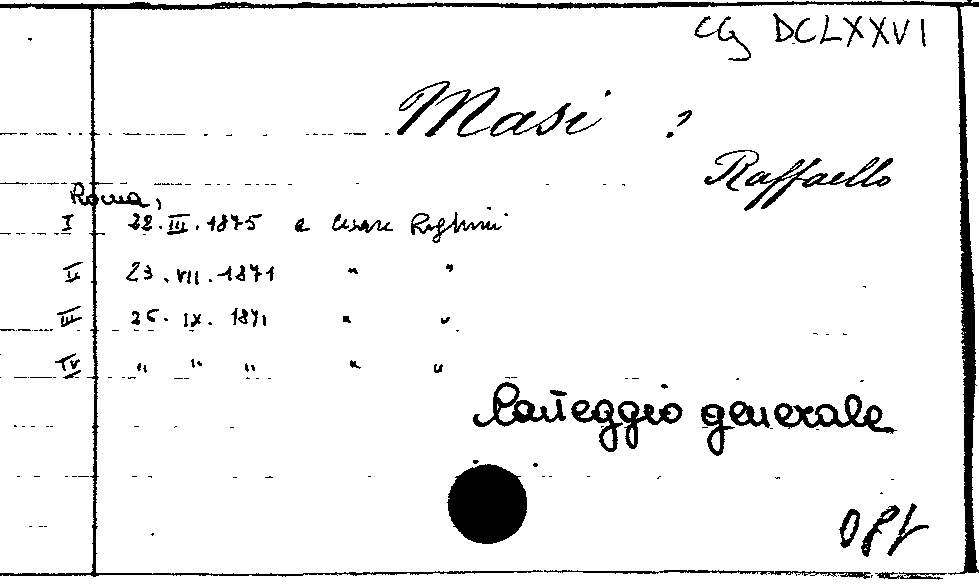 CG DCLXXVI
Masi ?
Raffaello
Roma,
I 22.III.1875 a Cesare Righini
II 23.VII.1871 " "
III 25.IX.1871 " "
IV " " " " "
Carteggio generale